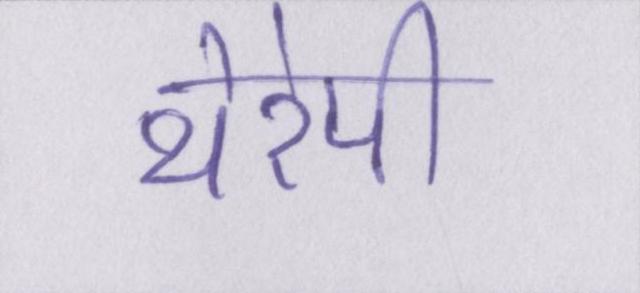 थेरेपी